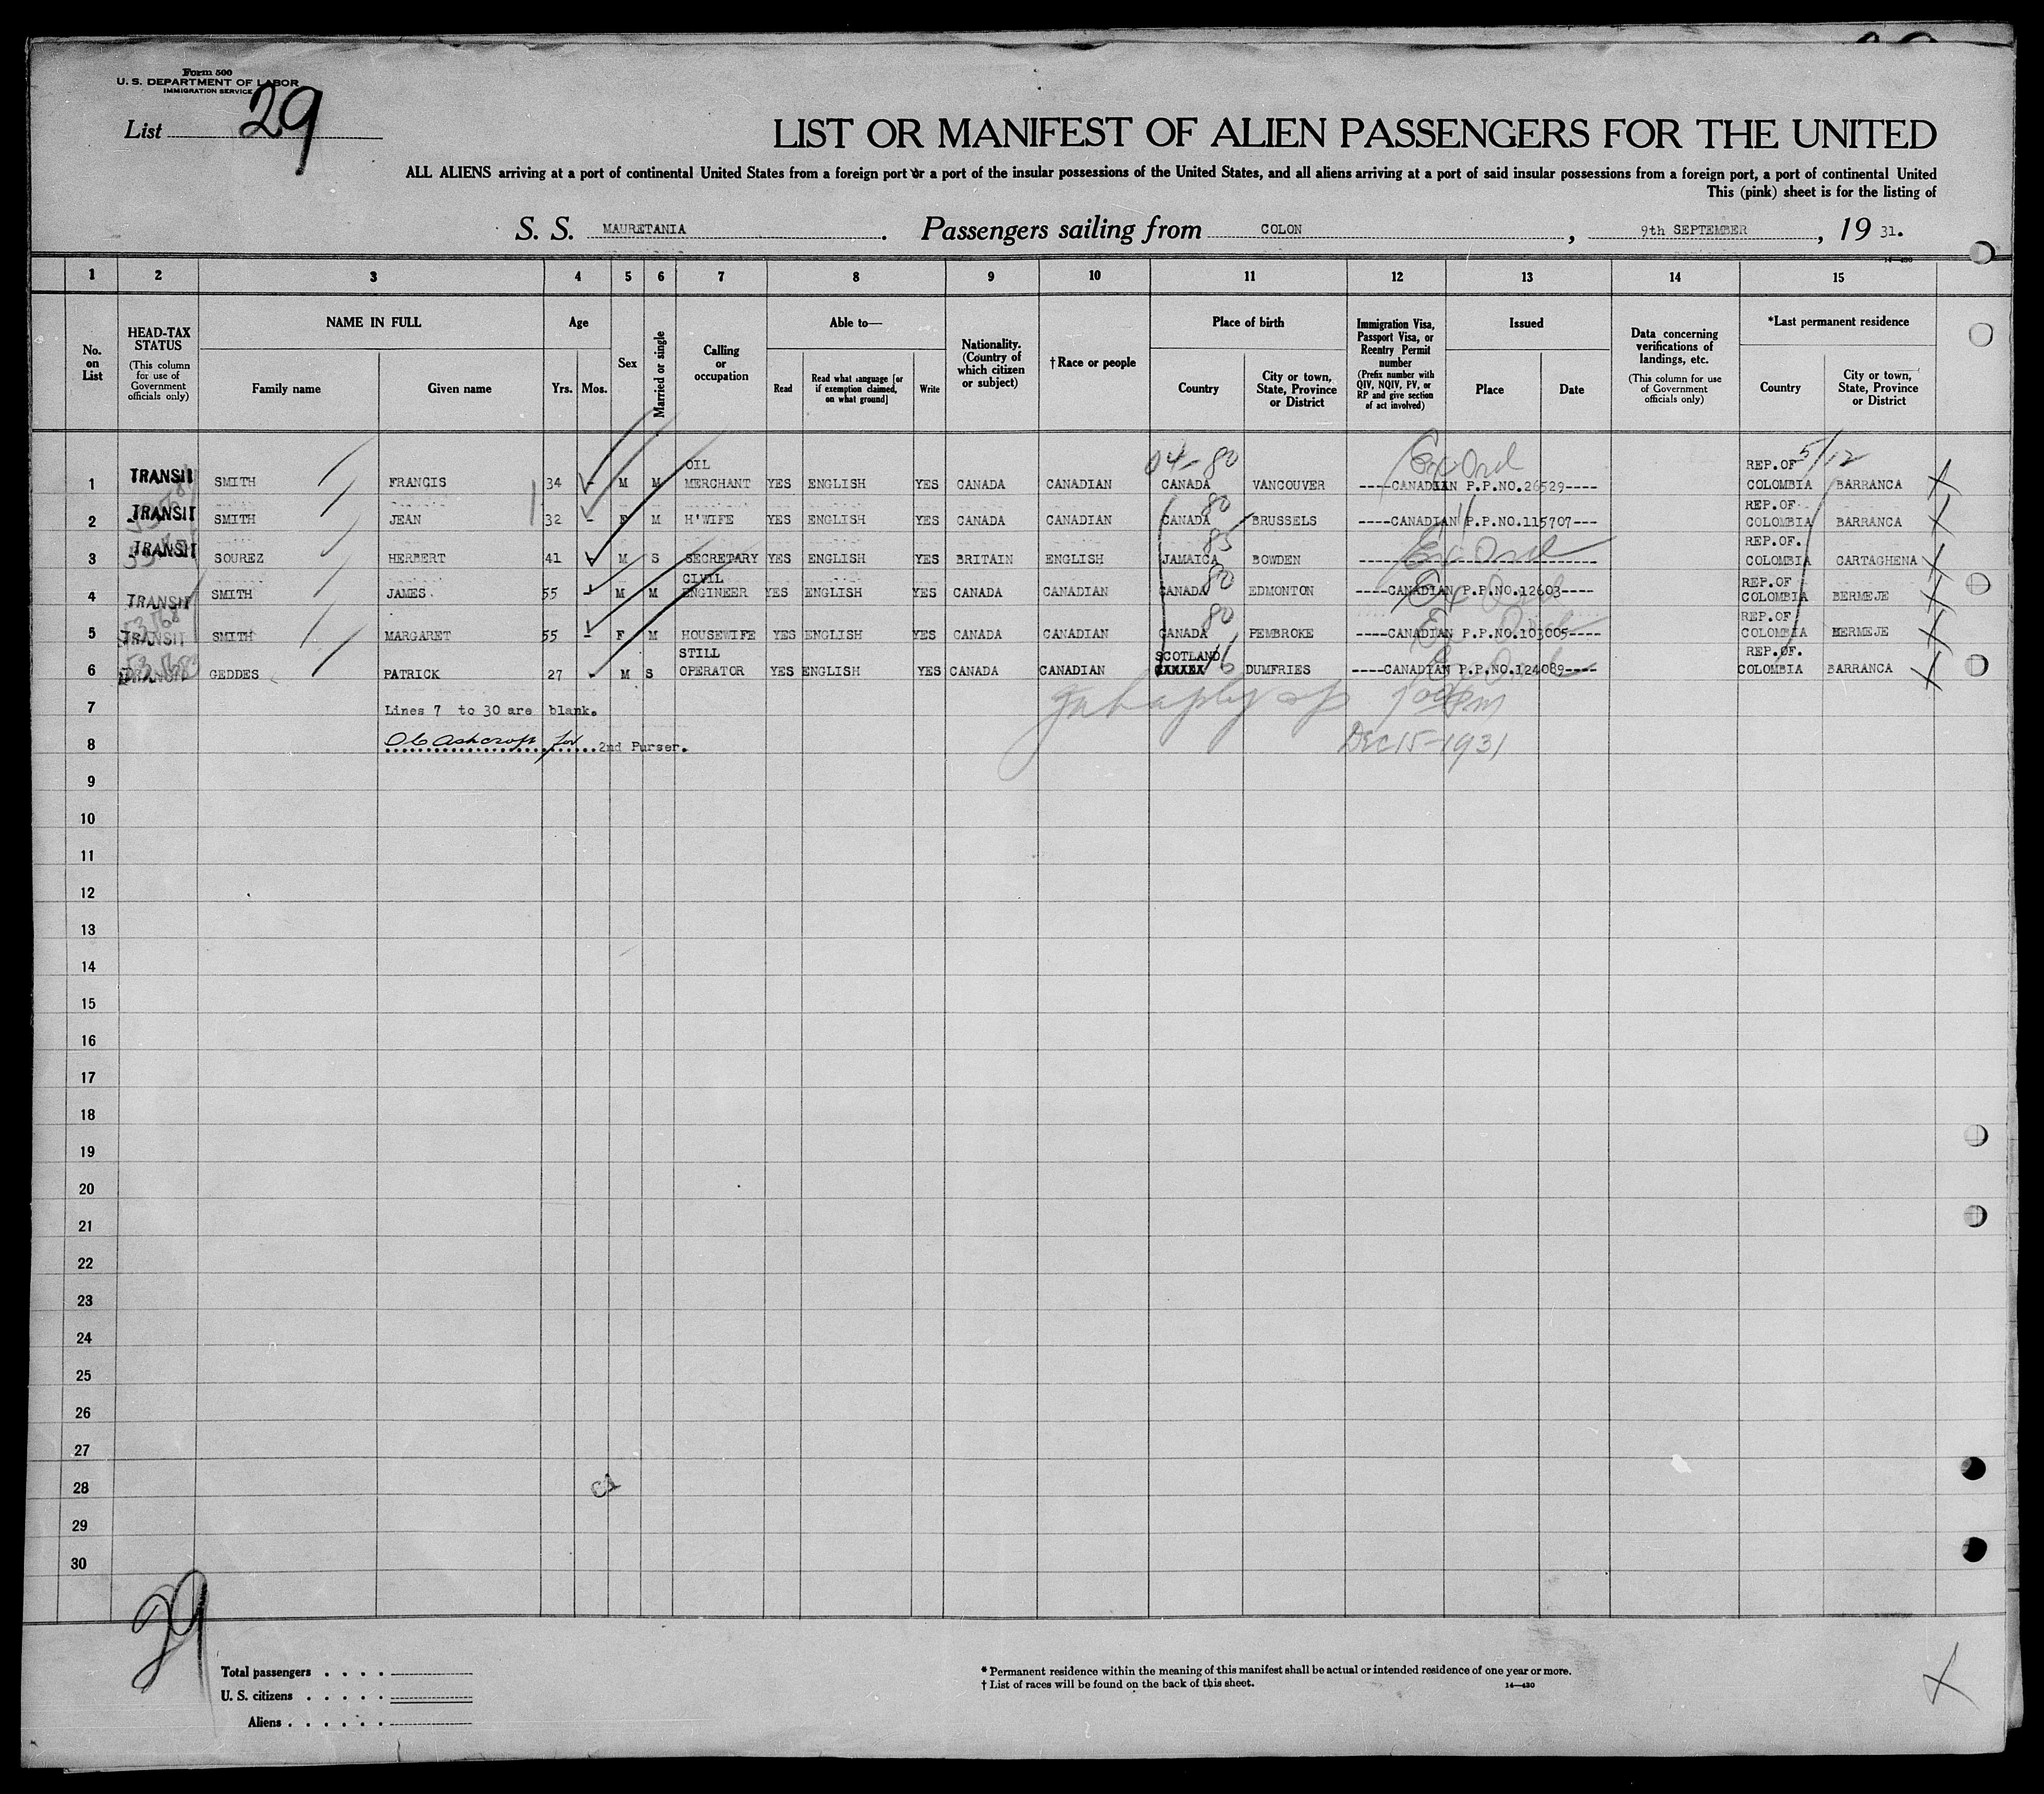 Form 500
U. S. DEPARTMENT OF LABOR
IMMIGRATION SERVICE
List 29
LIST OR MANIFEST OF ALIEN PASSENGERS FOR THE UNITED
ALL ALIENS arriving at a port of continental United States from a foreign port or a port of the insular possessions of the United States, and all aliens arriving at a port of said insular possessions from a foreign port, a port of continental United
This (pink) sheet is for the listing of
S. S. MAURETANIA. Passengers sailing from COLON, 9th SEPTEMBER, 19 31.
14—430
1 2 3 4 5 6 7 8 9 10 11 12 13 14 15
No. on List
HEAD-TAX STATUS (This column for use of Government officials only)
NAME IN FULL
Family name
Given name
Age
Yrs.
Mos.
Sex
Married or single
Calling or occupation
Able to—
Read
Read what language [or if exemption claimed, on what ground]
Write
Nationality. (Country of which citizen or subject)
†Race or people
Place of birth
Country
City or town, State, Province or District
Immigration Visa, Passport Visa, or Reentry Permit number (Prefix number with QIV, NQIV, PV, or RP and give section of act involved)
Issued
Place
Date
Data concerning verifications of landings, etc. (This column for use of Government officials only)
*Last permanent residence
Country
City or town, State, Province or District
04-80 5/12
1 TRANSIT SMITH FRANCIS 34 - M M OIL MERCHANT YES ENGLISH YES CANADA CANADIAN CANADA VANCOUVER ----CANADIAN P.P.NO.26529---- REP.OF COLOMBIA BARRANCA X
2 TRANSIT SMITH JEAN 32 - F M H'WIFE YES ENGLISH YES CANADA CANADIAN CANADA 80 BRUSSELS ----CANADIAN P.P.NO.115707--- REP.OF. COLOMBIA BARRANCA X
3 TRANSIT SOUREZ HERBERT 41 M S SECRETARY YES ENGLISH YES BRITAIN ENGLISH JAMAICA 85 BOWDEN REP.OF. COLOMBIA CARTAGHENA X
4 TRANSIT SMITH JAMES. 55 - M M CIVIL ENGINEER YES ENGLISH YES CANADA CANADIAN CANADA 80 EDMONTON ----CANADIAN P.P.NO.12603---- REP.OF COLOMBIA BERMEJE X
5 TRANSIT SMITH MARGARET 55 - F M HOUSEWIFE YES ENGLISH YES CANADA CANADIAN CANADA 80 PEMBROKE ----CANADIAN P.P.NO.103005---- REP.OF COLOMBIA BERMEJE X
6 TRANSIT GEDDES PATRICK 27 - M S STILL OPERATOR YES ENGLISH YES CANADA CANADIAN SCOTLAND 6 DUMFRIES ----CANADIAN P.P.NO.124089---- REP.OF. COLOMBIA BARRANCA X
7 Lines 7 to 30 are blank.
8 Ashcroft for 2nd Purser. Dec 15-1931
9
10
11
12
13
14
15
16
17
18
19
20
21
22
23
24
25
26
27
28 CA
29
30
29
Total passengers . . . .
U. S. citizens . . . . .
Aliens . . . . . .
* Permanent residence within the meaning of this manifest shall be actual or intended residence of one year or more.
† List of races will be found on the back of this sheet.
14—430
X